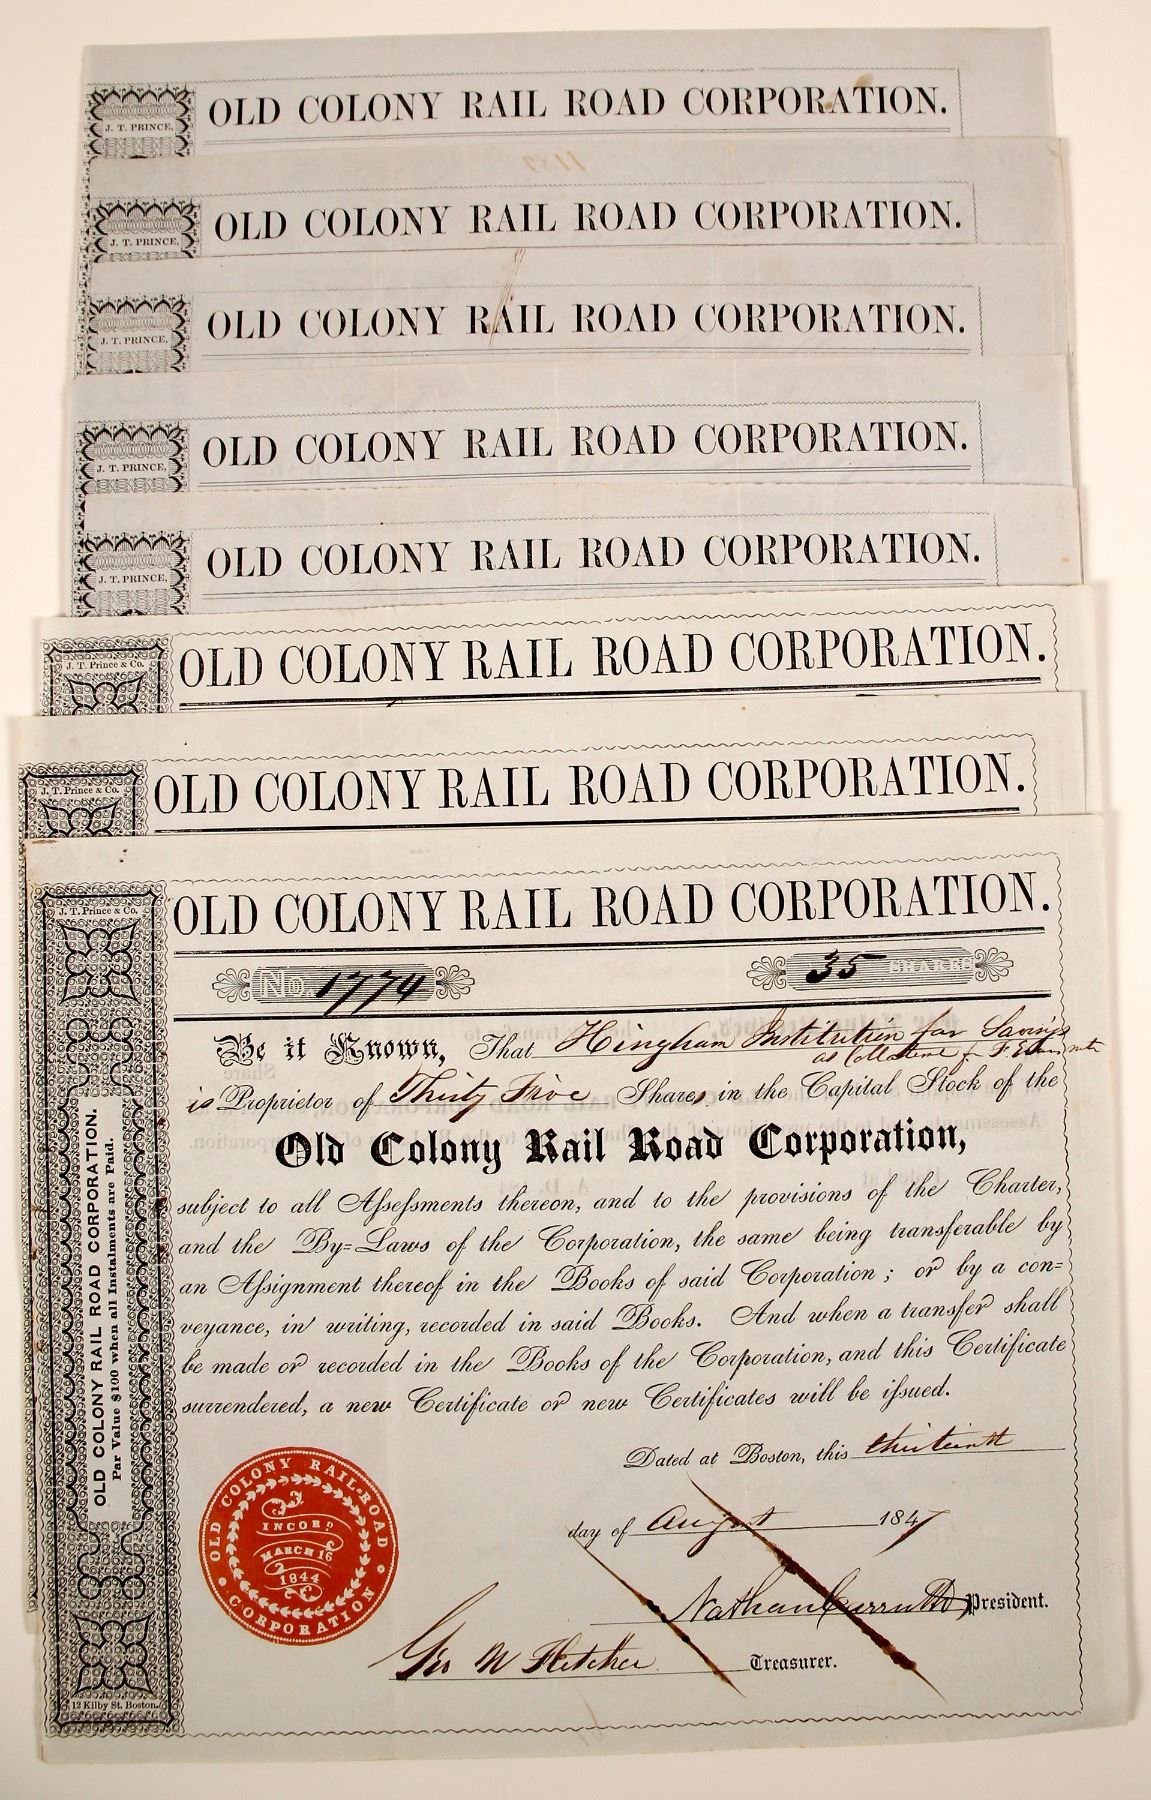 OLD COLONY RAIL ROAD CORPORATION.
J. T. PRINCE,
OLD COLONY RAIL ROAD CORPORATION.
J. T. PRINCE,
OLD COLONY RAIL ROAD CORPORATION.
J. T. PRINCE,
OLD COLONY RAIL ROAD CORPORATION.
J. T. PRINCE,
OLD COLONY RAIL ROAD CORPORATION.
J. T. PRINCE,
OLD COLONY RAIL ROAD CORPORATION.
J. T. Prince & Co.
OLD COLONY RAIL ROAD CORPORATION.
J. T. Prince & Co.
OLD COLONY RAIL ROAD CORPORATION.
J. T. Prince & Co.
No. 1774 35 SHARES
Be it Known, That Hingham Institution for Savings
as Collateral for F
is Proprietor of Thirty Five Shares in the Capital Stock of the
Old Colony Rail Road Corporation,
subject to all Assessments thereon, and to the provisions of the Charter,
and the By=Laws of the Corporation, the same being transferable by
an Assignment thereof in the Books of said Corporation; or by a con=
veyance, in writing, recorded in said Books. And when a transfer shall
be made or recorded in the Books of the Corporation, and this Certificate
surrendered, a new Certificate or new Certificates will be issued.
Dated at Boston, this thirteenth
day of August 1847
Nathan Carruth President.
Geo W Fletcher Treasurer.
OLD COLONY RAIL ROAD CORPORATION.
Par Value $100 when all Instalments are Paid.
12 Kilby St. Boston.
OLD COLONY RAIL-ROAD
CORPORATION
INCORD
MARCH 16
1844